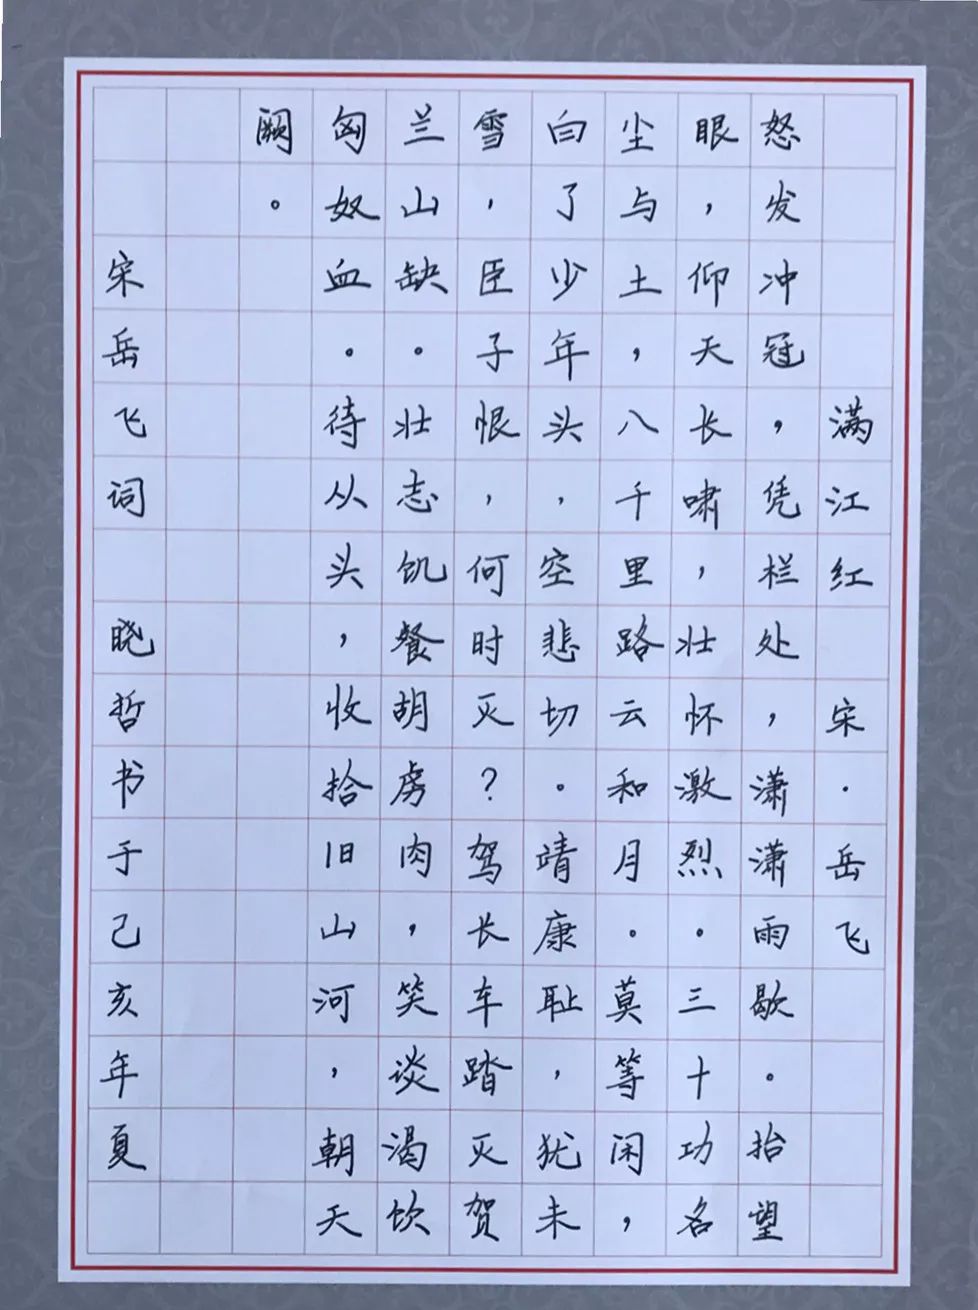 满江红 宋·岳飞
怒发冲冠，凭栏处，潇潇雨歇。抬望
眼，仰天长啸，壮怀激烈。三十功名
尘与土，八千里路云和月。莫等闲，
白了少年头，空悲切。靖康耻，犹未
雪，臣子恨，何时灭？驾长车踏灭贺
兰山缺。壮志饥餐胡虏肉，笑谈渴饮
匈奴血。待从头，收拾旧山河，朝天
阙。
宋岳飞词 晓哲书于己亥年夏